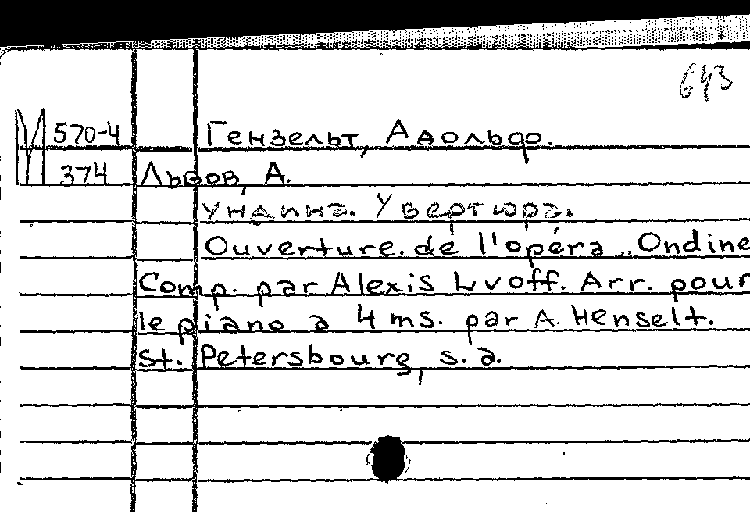 643
М 570-4 Гензельт, Адольф.
374 Львов, А.
Ундина. Увертюра.
Ouverture de l'opéra „Ondine
Comp. par Alexis Lvoff. Arr. pour
le piano à 4 ms. par A. Henselt.
St. Petersbourg, s. a.